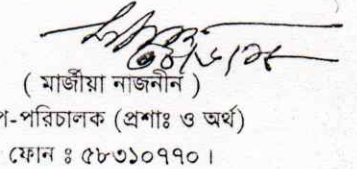 ( মার্জীয়া নাজনীন )
প-পরিচালক (প্রশাঃ ও অর্থ)
ফোন ঃ ৫৮৩১০৭৭০।